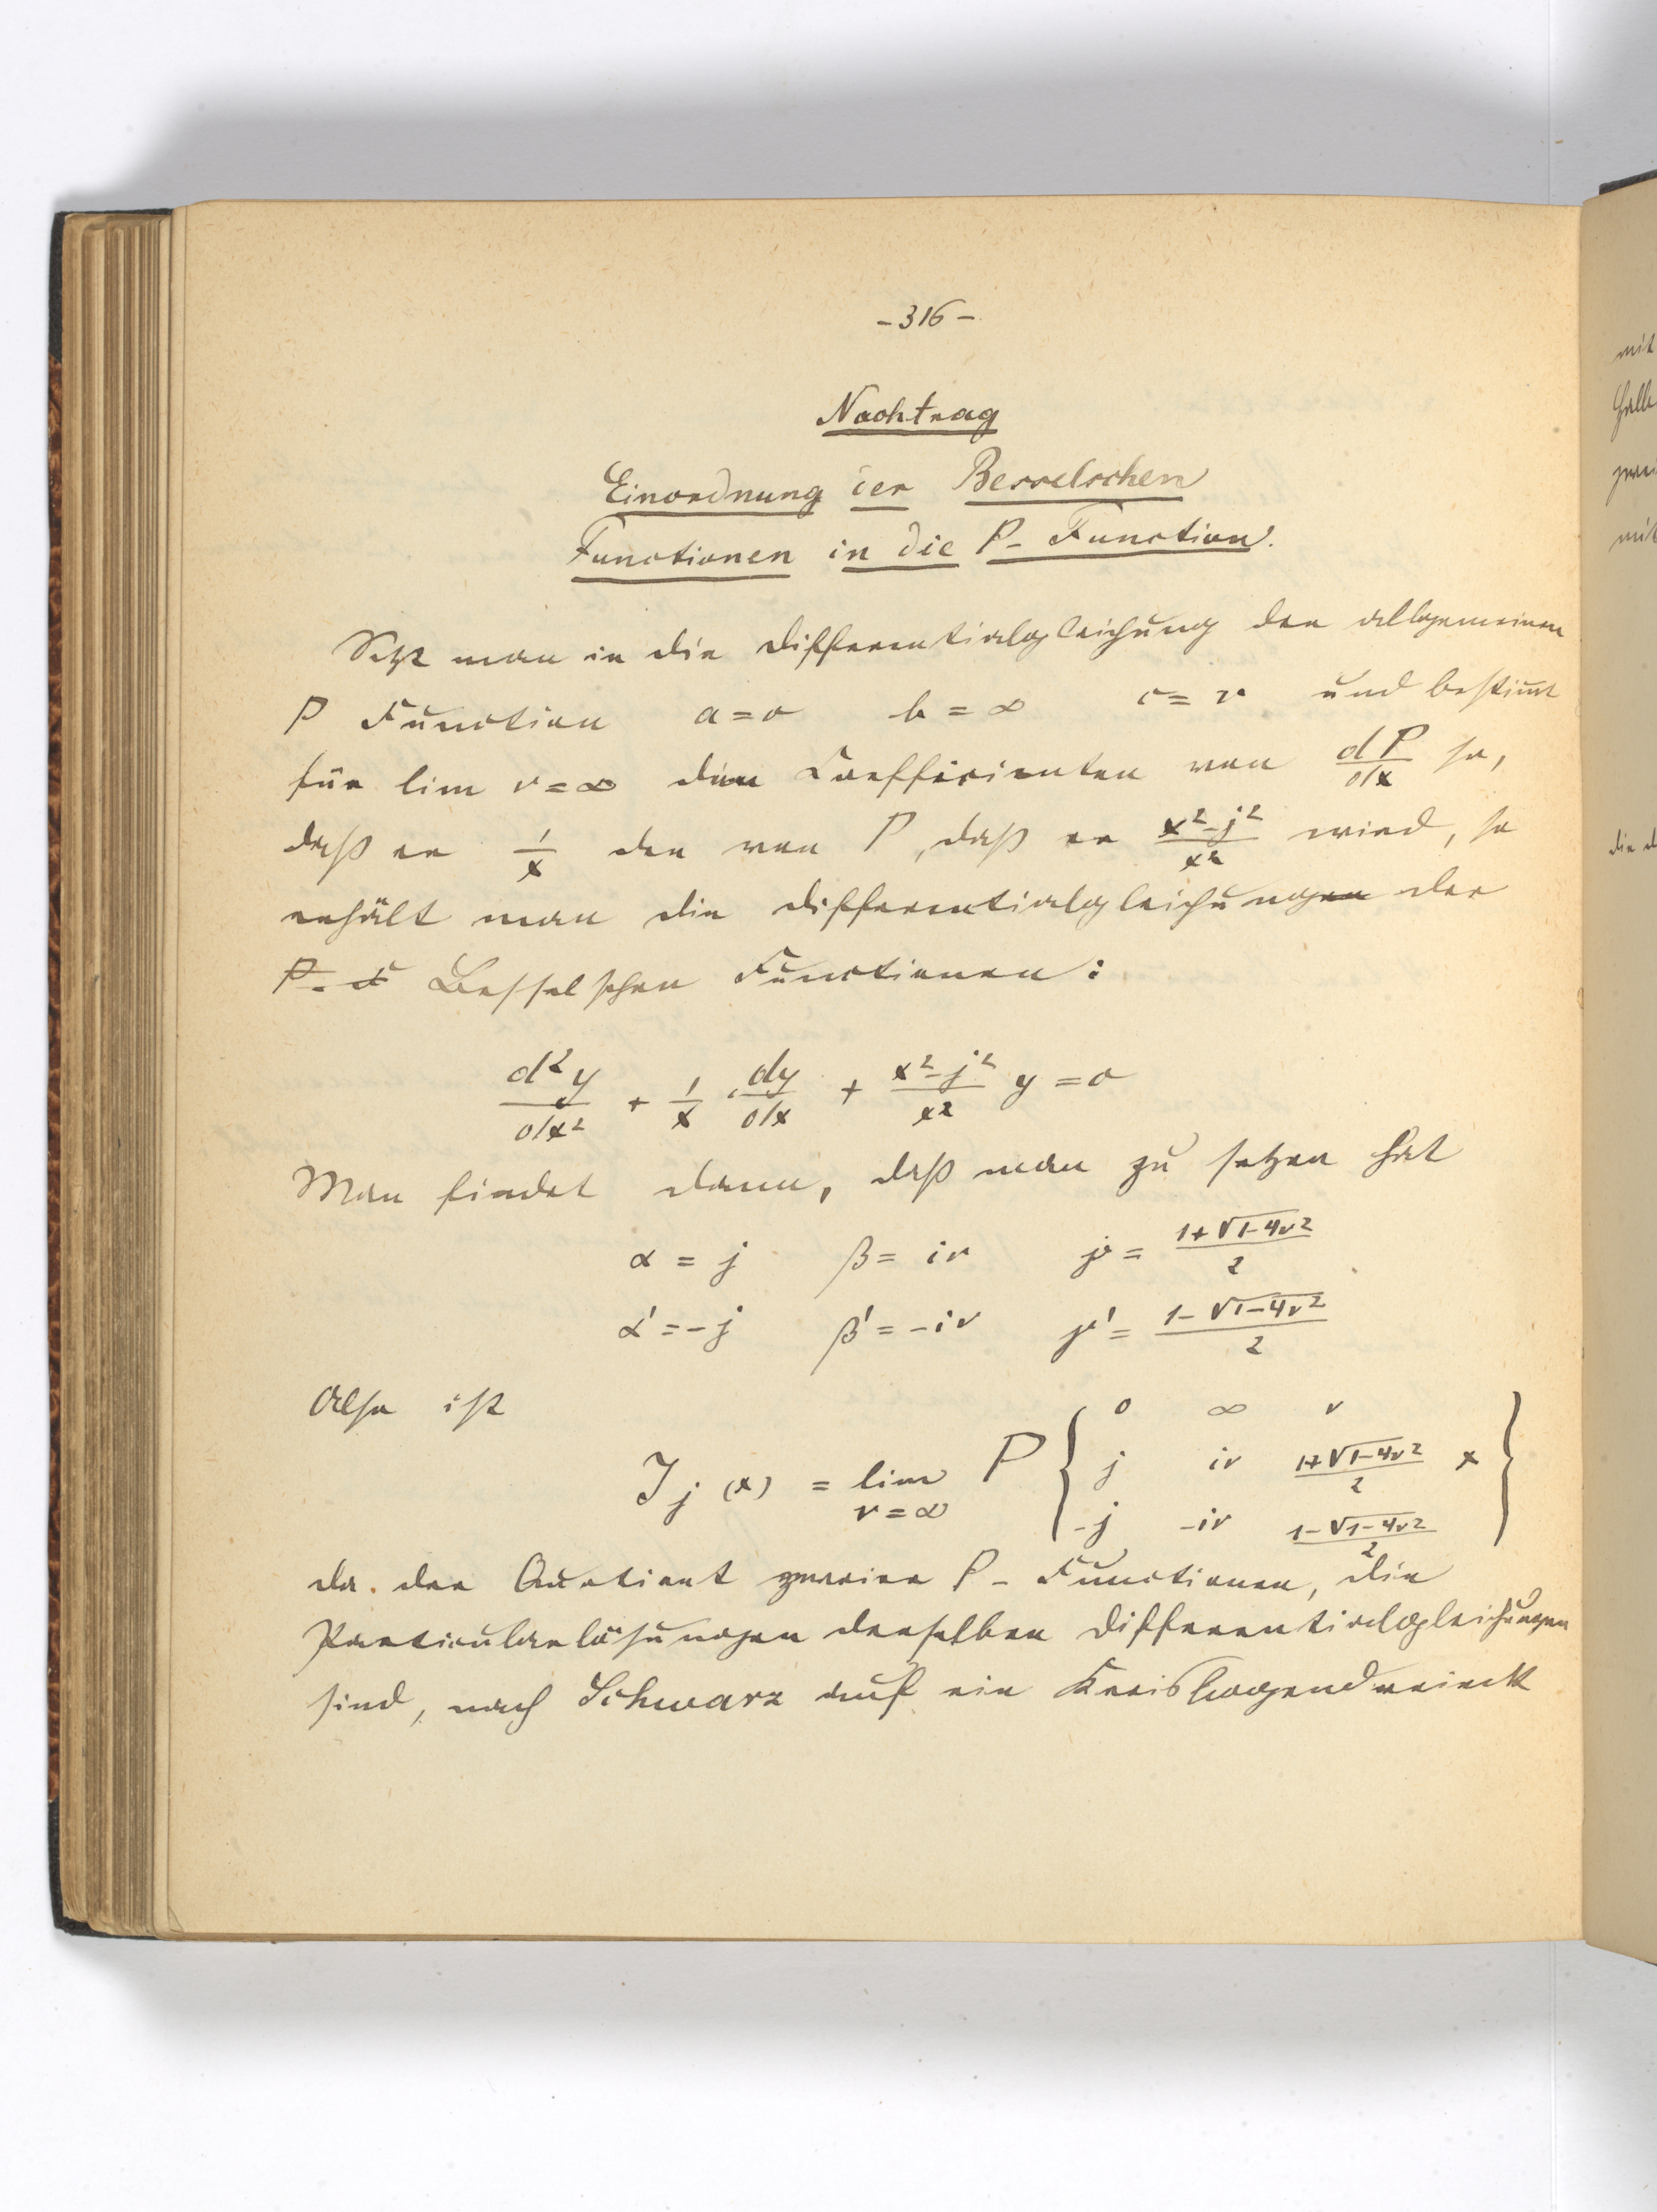 - 316 -
Nachtrag
Einordnung der Besselschen
Functionen in die P- Function.
Setzt man in die Differentialgleichung der allgemeinen
P Function a=0 b=∞ c=r und bestimt
für lim r=∞ den Coefficienten von dP/dx so,
daß er 1/x den von P, daß er (x²-j²)/x² wird, so
erhält man die Differentialgleichungen der
P. F Besselschen Functionen:
d²y/dx² + 1/x · dy/dx + (x²-j²)/x² y = 0
Man findet dann, daß man zu setzen hat
α = j β = ir γ = (1+√1-4r²)/2
α' = -j β' = -ir γ' = (1-√1-4r²)/2
Also ist
0 ∞ r
J j (x) = lim P { j ir (1+√1-4r²)/2 x }
r=∞ -j -ir (1-√1-4r²)/2
da. der Quotient zweier P- Functionen, die
Particularlösungen derselben Differentialgleichungen
sind, nach Schwarz auf ein Kreisbogendreieck
mit
die d